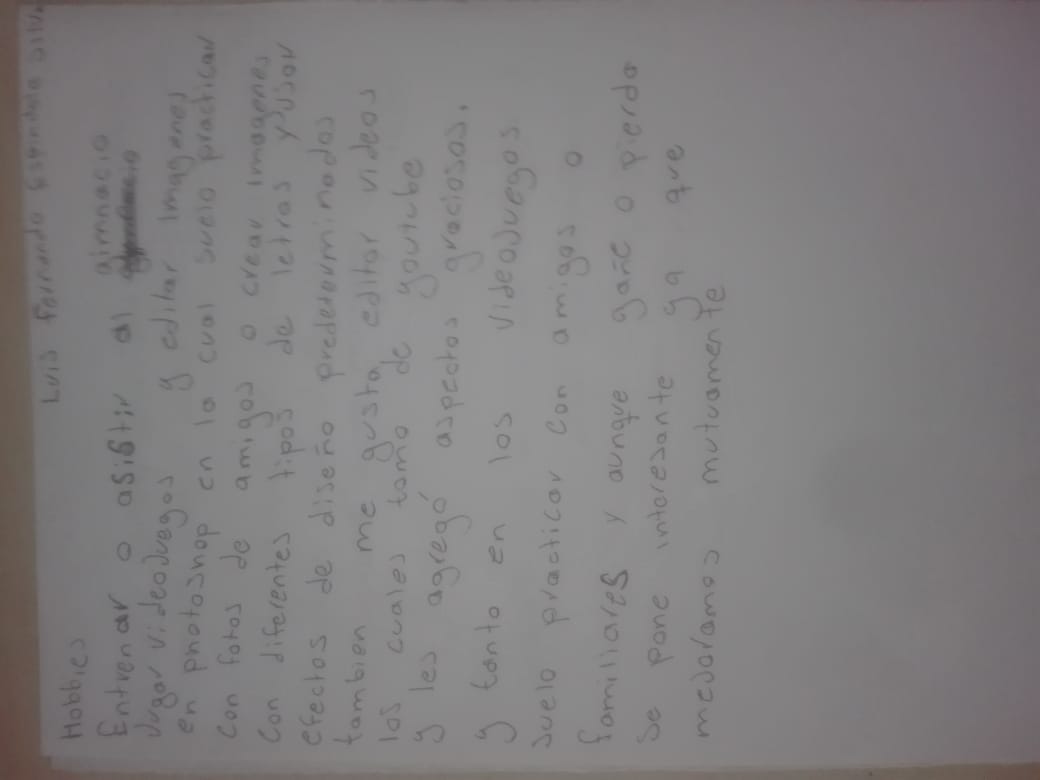 Luis Fernando Espindola Silva
Hobbies
Entrenar o asistir al gimnacio
Jugar videoJuegos y editar Imagenes
en photoshop en lo cual suelo practicar
Con fotos de amigos o crear imagenes
Con diferentes tipos de letras y usar
efectos de diseño predeterminados
tambien me gusta editar videos
los cuales tomo de youtube
y les agregó aspectos graciosos.
y tanto en los videoJuegos
suelo practicar con amigos o
familiares y aunque gañe o pierda
se pone interesante ya que
meJoramos mutuamente